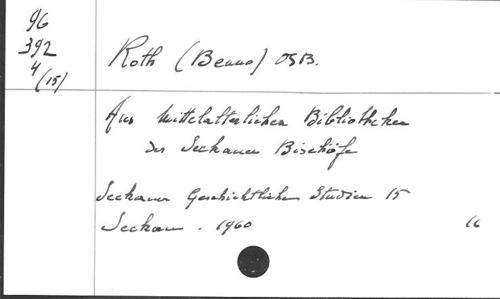 96
392
4
(15)
Roth (Benno) OSB.
Aus mittelalterlichen Bibliotheken
der Seckauer Bischöfe
Seckauer Geschichtliche Studien 15
Seckau . 1960
16